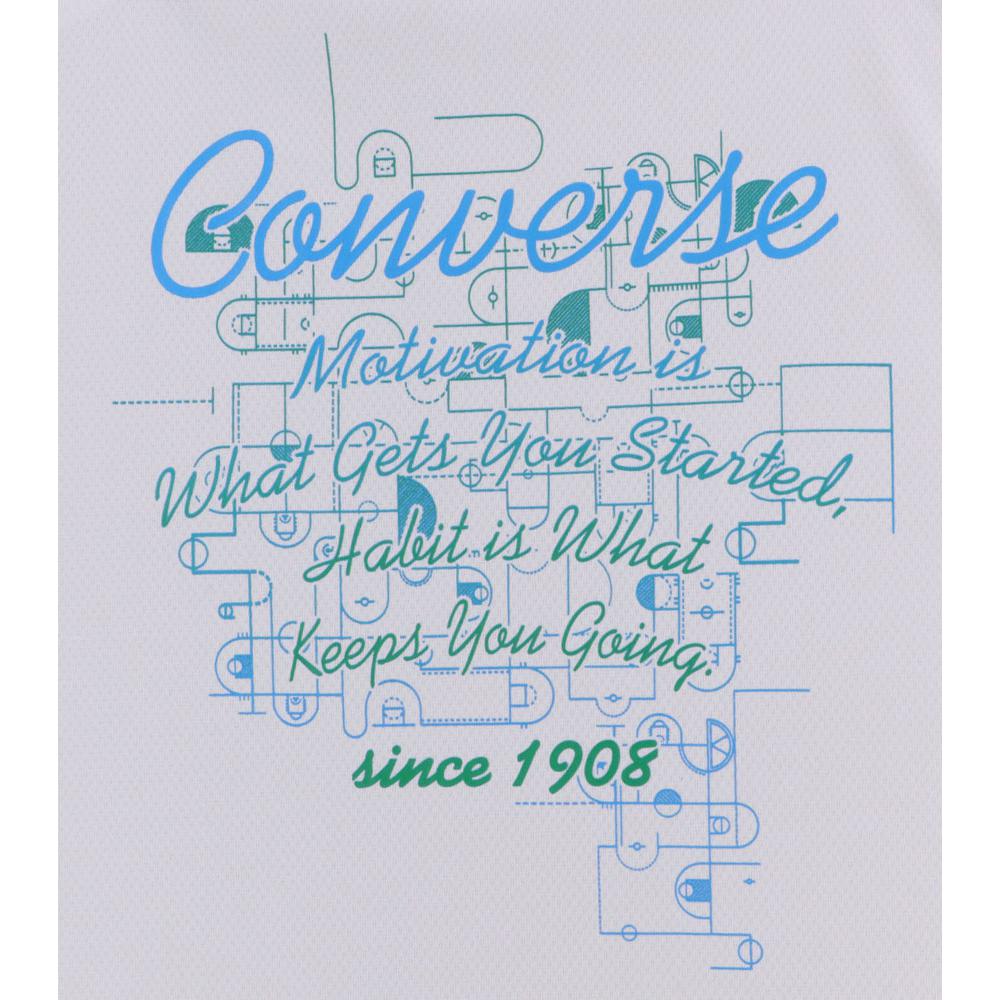 Converse
Motivation is
What Gets You Started,
Habit is What
Keeps You Going.
since 1908